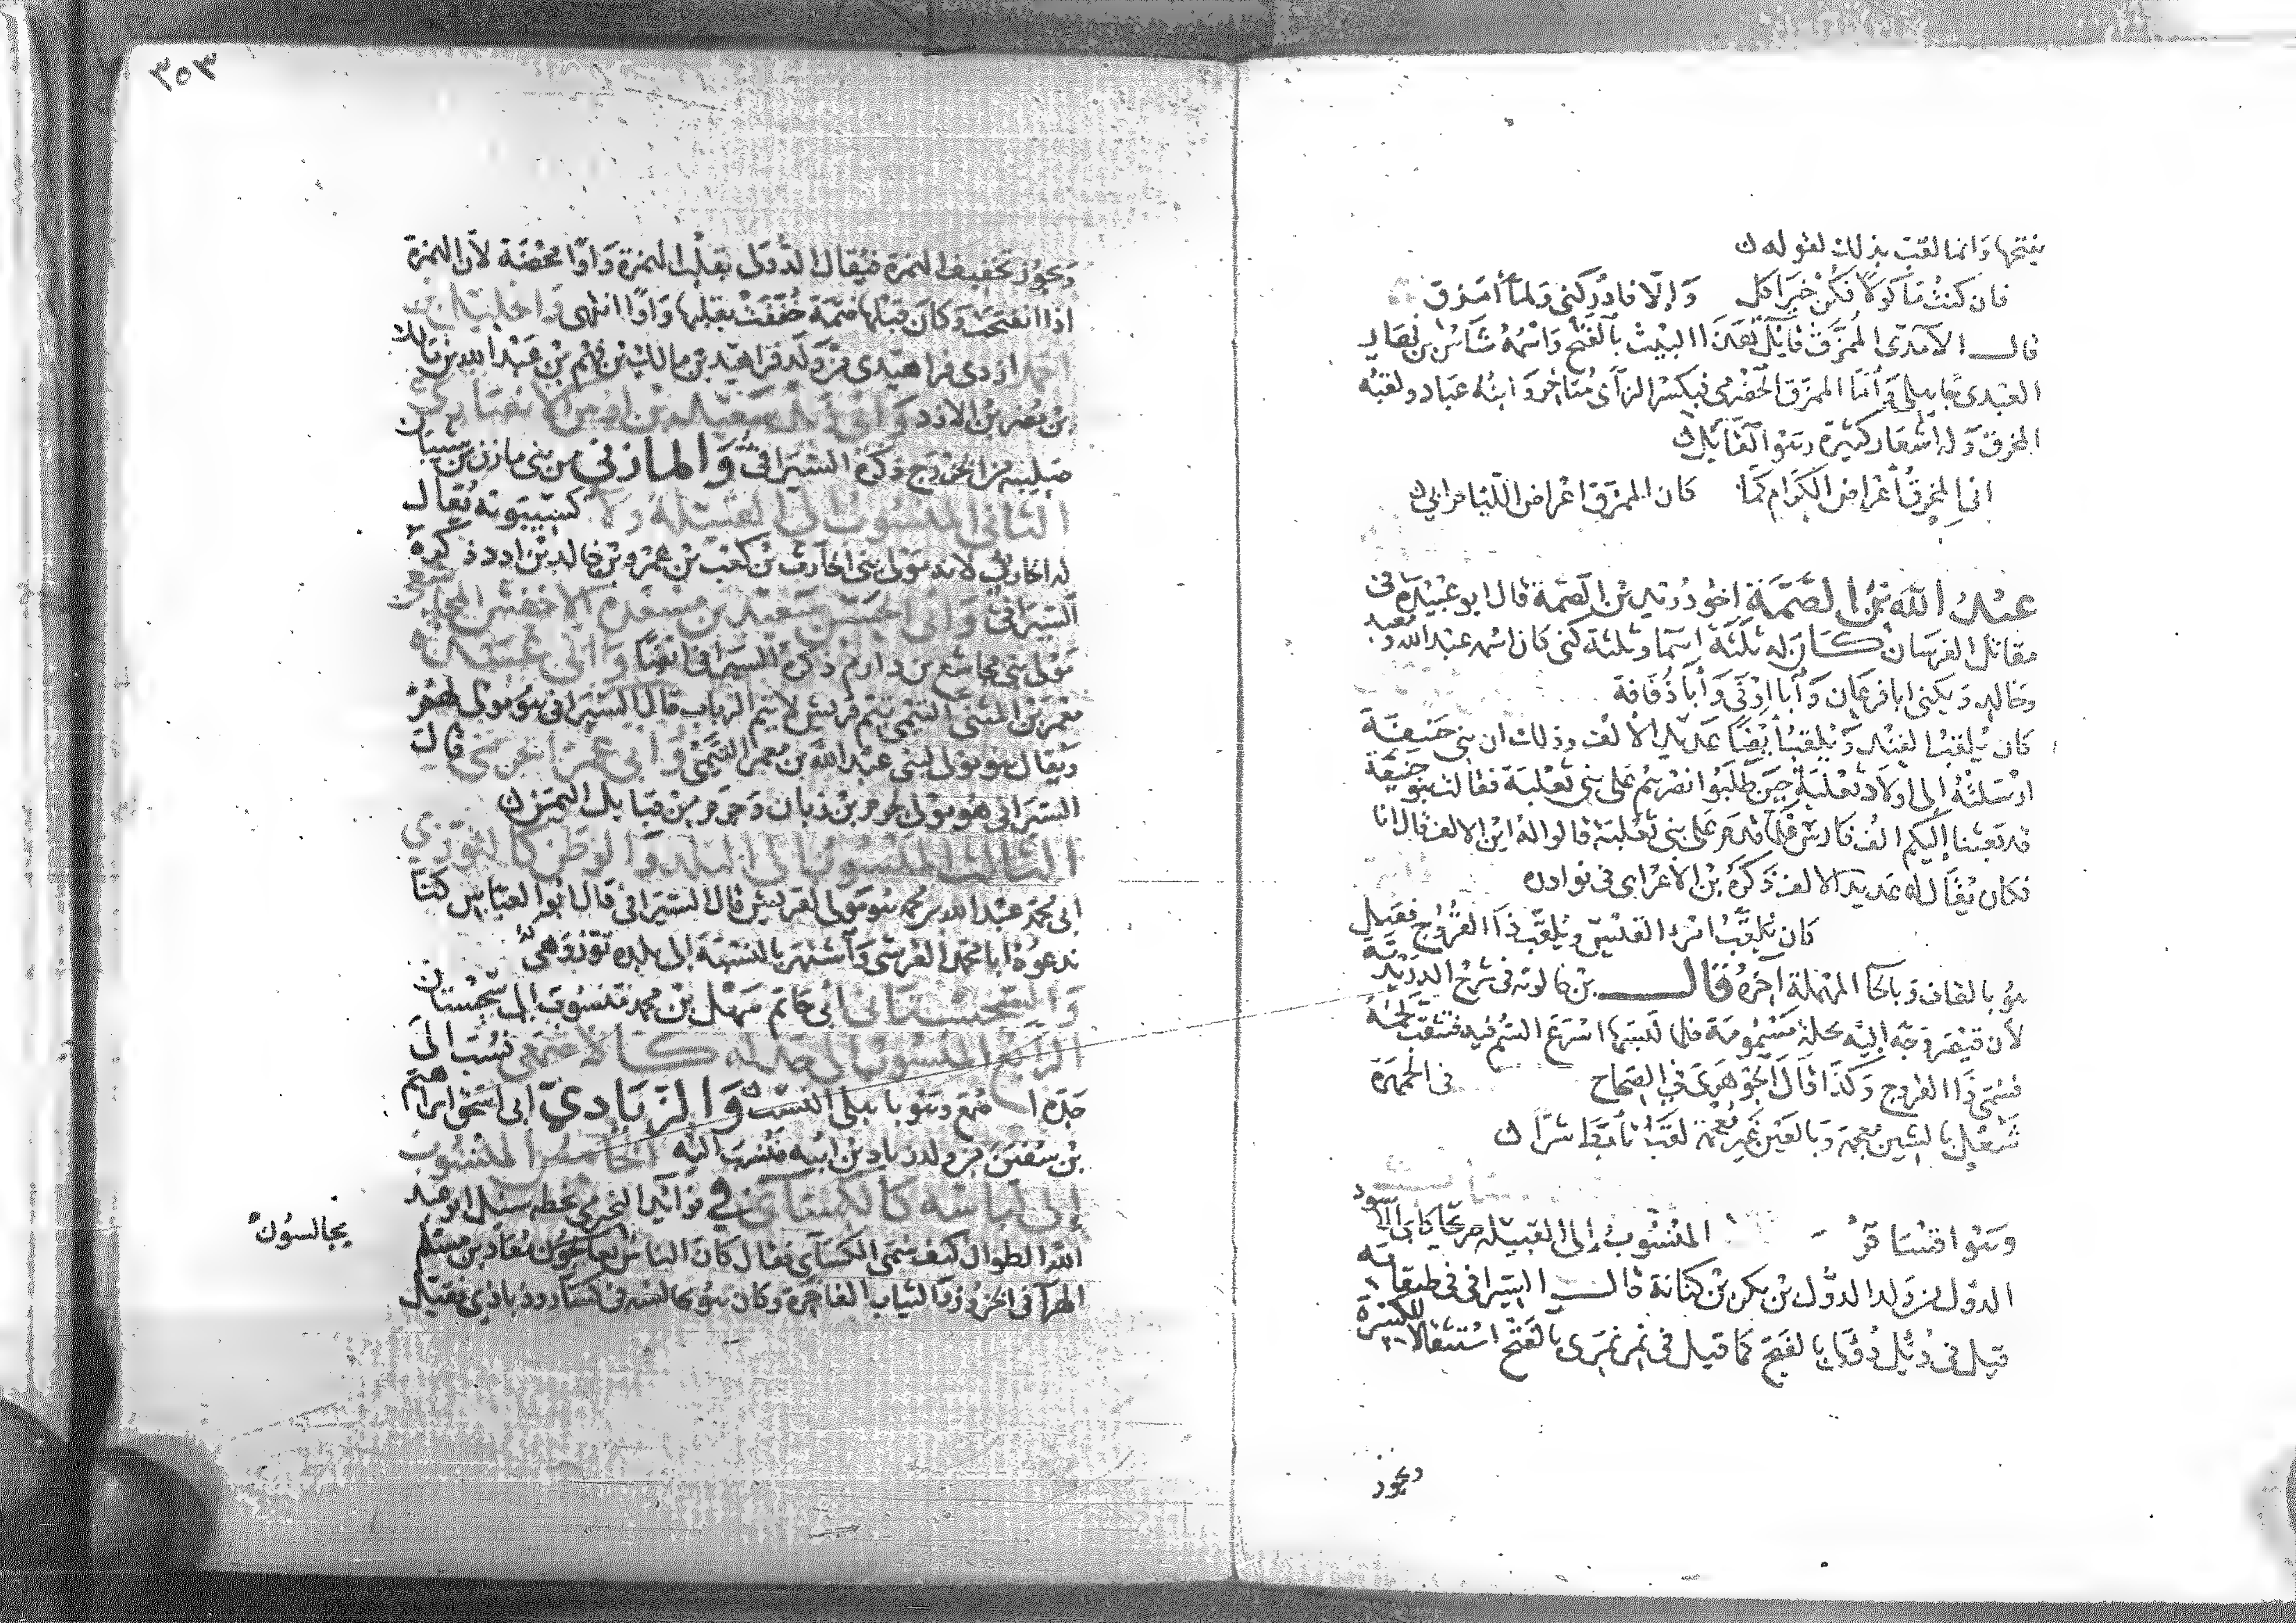 بفتحها وانما لقب بذلك لقوله
فان كنت مأكولا فكن خير اكل وإلا فادركني ولما أمزق
قال الآمدي الممزق قايل هذا البيت بالفتح واسمه شاس بن نهار
العبدي جاهلي وأما الممزق الحضرمي فبكسر الزاى متاخر وابنه عباد ولقبه
المخرق وله اشعار كثيرة وهو القايل
انى المخرق أعراض الكرام كما كان الممزق اعراض اللئام ابي
عبد الله بن الصمة اخو دريد بن الصمة قال ابو عبيدة فى
مقاتل الفرسان كان له ثلثة اسما وثلثة كنى كان اسمه عبد الله ومعبد
وخالد ويكنى ابا فرعان وأبا اوفى وأبا ذفافة
كان يلقب الفند ويلقب أيضا عديد الألف وذلك ان بنى حنيفة
ارسلته إلى اولاد ثعلبة حين طلبوا نصرهم على بنى ثعلبة فقالت بنو حنيفة
قد بعثنا إليكم الف فارس فلما قدم على بنى ثعلبة قالوا له اين الالف قال انا
فكان يقال له عديد الالف ذكره بن الأعرابى فى نوادره
كان يلقب امرء القيس ويلقب ذا القروح فقيل
هو بالقاف وبالحا المهملة آخره قال بن خالويه فى شرح الدريدية
لأن قيصر وجه إليه بحلة مسمومة فلما لبسها اسرع السم فيه فتثقب لحمه
فسمى ذا القروح وكذا قال الجوهرى فى الصحاح فى الجمهرة
شعل بالشين معجمة وبالعين غير معجمة لقب تأبط شرا
وهو اقسام المنسوب إلى القبيلة صريحا كابى الاسود
الدؤل من ولد الدؤل بن بكر بن كنانة قال السيرافى فى طبقاته
قيل فى دئل دؤلى بالفتح كما قيل فى نمر نمرى بالفتح استثقالا للكسرة
ويجوز
٣٥٣
ويجوز تخفيف الهمزة فيقال الدولى بقلب الهمزة واوا محضة لأن الهمزة
اذا انفتحت وكان قبلها ضمة خففت بقلبها واوا انتهى والخليل بن
احمد ازدى فراهيدى من ولد فراهيد بن مالك بن فهم بن عبد الله بن مالك
بن مضر بن الازد وابى زيد سعيد بن اوس الانصارى
صليبه من الخزرج ذكره السيرافى والمازني من بنى مازن بن شيبان
الثانى المنسوب الى القبيلة ولا كسيبويه يقال
له الحارثي لانه مولى بنى الحارث بن كعب بن عمرو بن خالد بن ادد ذكره
السيرافى وابى الحسن سعيد بن مسعدة الاخفش المجاشعى
مولى بنى مجاشع بن دارم ذكره السيرافى ايضا وابى عبيدة
معمر بن المثنى التيمى تيم قريش لا تيم الرباب قال السيرافى هو مولى لهم
ويقال هو مولى لبنى عبد الله بن معمر التيمى وابى عمر الجرمى قال
السيرافى هو مولى لجرم بن ذبان وجرم من قبايل اليمن
الثالث المنسوب الى البلد والوطن كالتوزي
ابى محمد عبد الله بن محمد هو مولى لقريش قال السيرافى قال ابو العباس كنا
ندعوه ابا محمد القرشى واشتهر بالنسبة إلى بلده توز وهى
والسجستانى أبى حاتم سهل بن محمد منسوب إلى سجستان
الرابع المنسوب الى جده كالاصمعي نسب الى
جده اصمع وهو باهلى النسب والزيادي ابى اسحق ابراهيم
بن سفين من ولد زياد بن ابيه فنسب اليه الخامس المنسوب
إلى لباسه كالكسائى في فوائد النجيرمى بخطه سئل ابو عبد
الله الطوال كيف سمى الكساى فقال كان الناس معاذ بن مسلم
يجالسون
الهرآ فى الخزوز والثياب الفاخرة وكان هو يجالسه فى كساء روذباذي فقيل